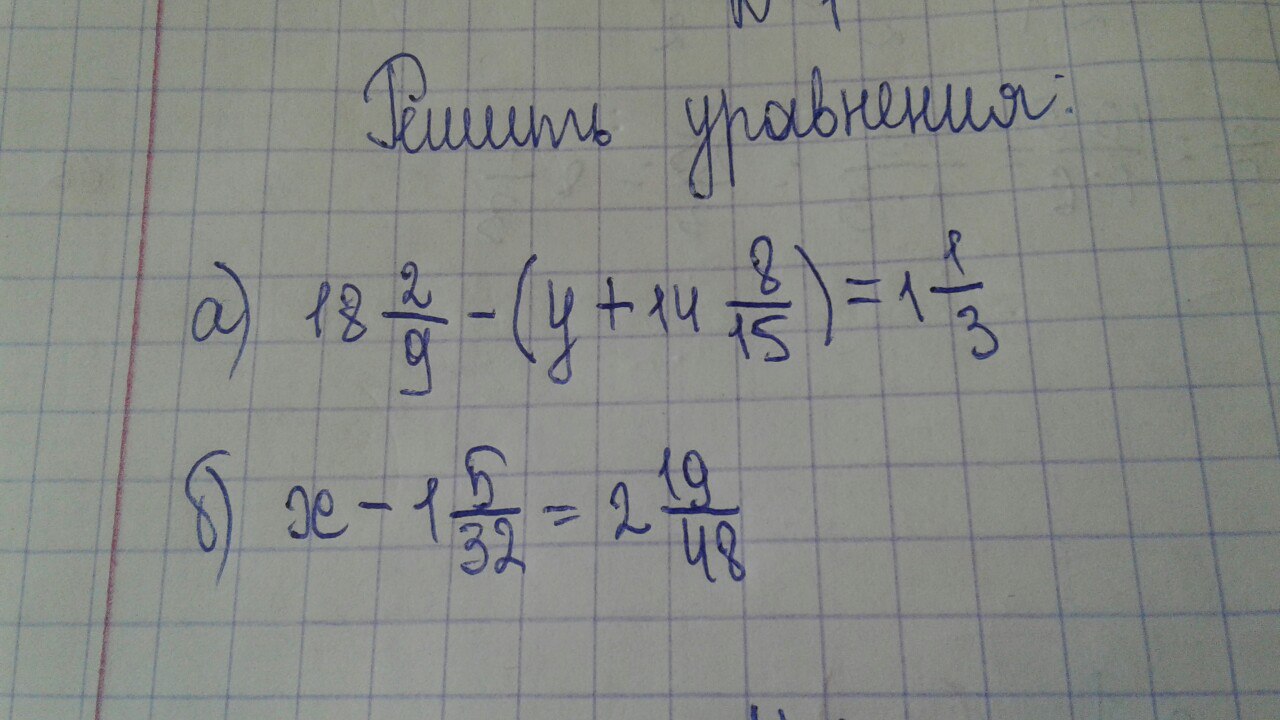 Решить уравнения:
а) 18 2/9 - (y + 14 8/15) = 1 1/3
б) x - 1 5/32 = 2 19/48